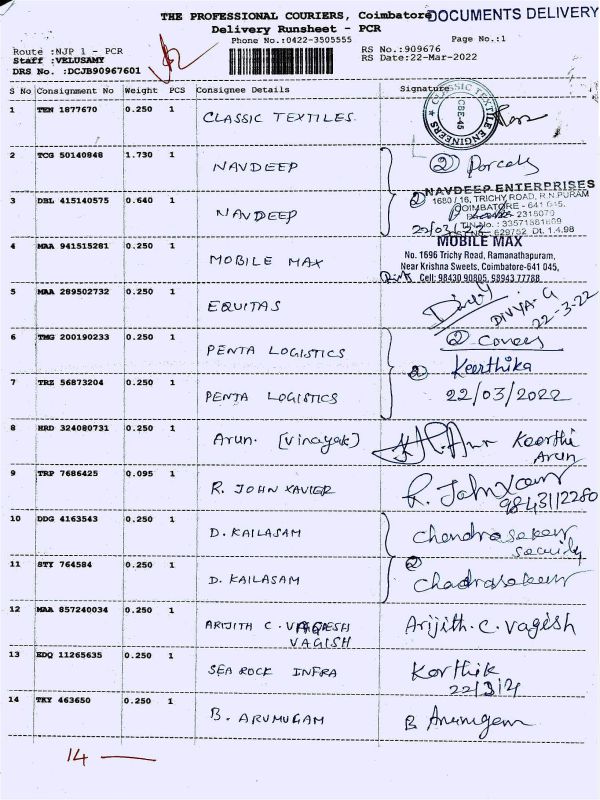 THE PROFESSIONAL COURIERS, Coimbatore DOCUMENTS DELIVERY
Delivery Runsheet - PCR
Phone No.:0422-3505555 Page No.:1
Route :NJP 1 - PCR RS No.:909676
Staff :VELUSAMY RS Date:22-Mar-2022
DRS No. :DCJB90967601
S No Consignment No Weight PCS Consignee Details Signature
1 TEN 1877670 0.250 1 CLASSIC TEXTILES
CLASSIC TEXTILE ENGINEERS
CBE-45
2 TCG 50140848 1.730 1 NAVDEEP 2 Parcels
NAVDEEP ENTERPRISES
3 DBL 415140575 0.640 1 NAVDEEP 2
1680 / 16, TRICHY ROAD, R.N.PURAM
COIMBATORE - 641 045.
2315070
TIN No. : 33571881609
629752 Dt. 1.4.98
MOBILE MAX
4 MAA 941515281 0.250 1 MOBILE MAX
No. 1696 Trichy Road, Ramanathapuram,
Near Krishna Sweets, Coimbatore-641 045,
Cell: 98430 90805, 98943 77788
5 MAA 289502732 0.250 1 EQUITAS DIVYA-G
22-3-22
6 TMG 200190233 0.250 1 PENTA LOGISTICS 2 Covers
2 Keerthika
7 TRZ 56873204 0.250 1 PENTA LOGISTICS 22/03/2022
8 HRD 324080731 0.250 1 Arun. [Vinayak] Keerthi
Arun
9 TRP 7686425 0.095 1 R. JOHN XAVIER R. John Xavier
9843112280
10 DDG 4163543 0.250 1 D. KAILASAM Chandrasekar
Security
11 STY 764584 0.250 1 D. KAILASAM 2 Chadrasekar
12 MAA 857240034 0.250 1 ARIJITH C. VAGESH Arijith.C.Vagish
VAGISH
13 EDQ 11265635 0.250 1 SEA ROCK INFRA Karthik
14 TKY 463650 0.250 1 B. ARUMUGAM B Arumugam
14 —